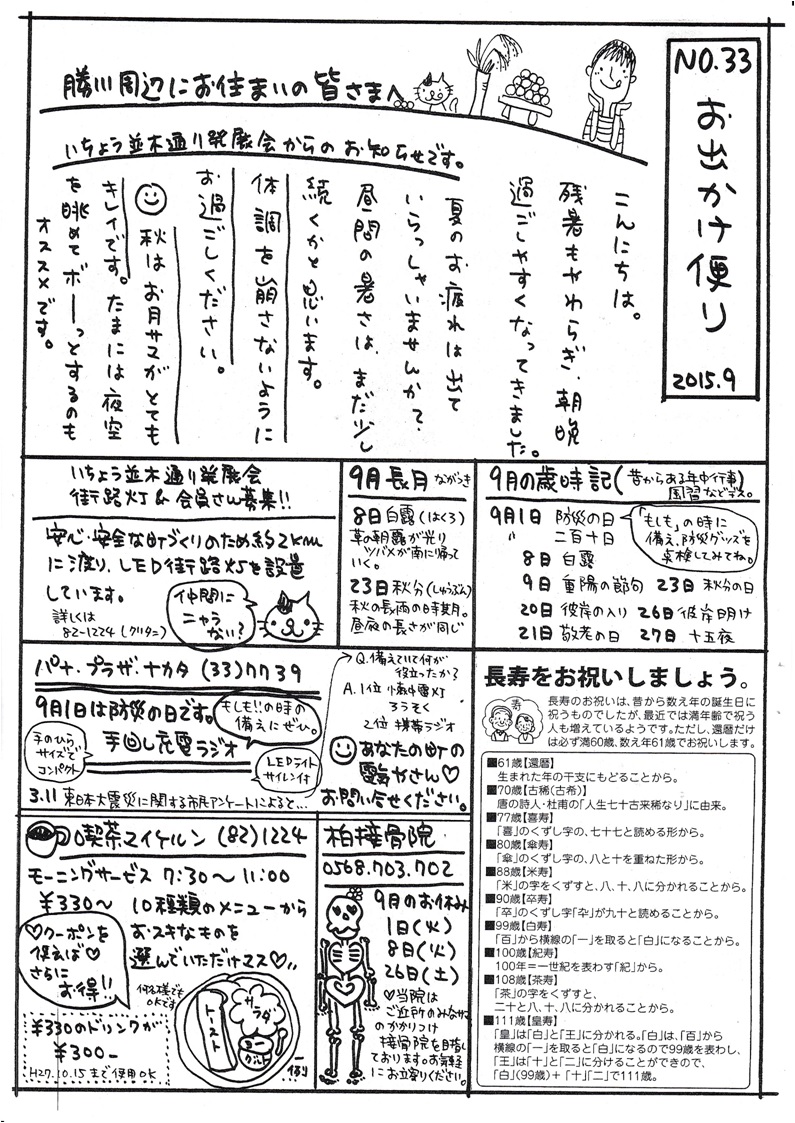 NO.33
お出かけ便り
2015.9
勝川周辺にお住まいの皆さまへ
いちょう並木通り発展会からのお知らせです。
こんにちは。
残暑もやわらぎ、朝晩
過ごしやすくなってきました。
夏のお疲れは出て
いらっしゃいませんか?
昼間の暑さは、まだ少し
続くかと思います。
体調を崩さないように
お過ごしください。
秋はお月サマがとても
キレイです。たまには夜空
を眺めてボーっとするのも
オススメです。
いちょう並木通り発展会
街路灯&会員さん募集!!
安心・安全な町づくりのため約2km
に渡り、LED街路灯を設置
しています。
詳しくは
82-1224(クリタニ)
仲間に
ニャろ
ない?
9月長月 ながつき
8日白露(はくろ)
草の朝露が光り
ツバメが南に帰って
いく。
23日秋分(しゅうぶん)
秋の長雨の時期。
昼夜の長さが同じ
9月の歳時記(昔からある年中行事)
風習などデス。
9月1日 防災の日
〃 二百十日
「もしも」の時に
備え、防災グッズを
点検してみてね。
8日 白露
9日 重陽の節句 23日 秋分の日
20日 彼岸の入り 26日 彼岸明け
21日 敬老の日 27日 十五夜
パナ・プラザ・ナカタ (33)7739
9月1日は防災の日です。
もしも!!の時の
備えにぜひ。
手回し充電ラジオ
手のひら
サイズで
コンパクト
LEDライト
サイレン付
3.11 東日本大震災に関する市民アンケートによると…
Q.備えていて何が
役立ったか?
A.1位 懐中電灯
ろうそく
2位 携帯ラジオ
あなたの町の
電気やさん♡
お問い合せください。
喫茶マイケルン (82)1224
モーニングサービス 7:30〜11:00
¥330〜 10種類のメニューから
お・スキなものを
選んでいただけマス♡
♡クーポンを
使えば♡
さらに
お得!!
何名様でも
OKです
¥330のドリンクが
¥300-
H27.10.15まで使用OK
トースト
サラダ
ヨーグルト
一例
柏接骨院
0568.703.702
9月のお休み
1日(火)
8日(火)
26日(土)
♡当院は
ご近所のみなサマ
のかかりつけ
接骨院を目指し
ております。お気軽
にお立寄りください。
長寿をお祝いしましょう。
寿
長寿のお祝いは、昔から数え年の誕生日に
祝うものでしたが、最近では満年齢で祝う
人も増えているようです。ただし、還暦だけ
は必ず満60歳、数え年61歳でお祝いします。
■61歳【還暦】
生まれた年の干支にもどることから。
■70歳【古稀(古希)】
唐の詩人・杜甫の「人生七十古来稀なり」に由来。
■77歳【喜寿】
「喜」のくずし字の、七十七と読める形から。
■80歳【傘寿】
「傘」のくずし字の、八と十を重ねた形から。
■88歳【米寿】
「米」の字をくずすと、八、十、八に分かれることから。
■90歳【卒寿】
「卒」のくずし字「卆」が九十と読めることから。
■99歳【白寿】
「百」から横線の「一」を取ると「白」になることから。
■100歳【紀寿】
100年=一世紀を表わす「紀」から。
■108歳【茶寿】
「茶」の字をくずすと、
二十と八、十、八に分かれることから。
■111歳【皇寿】
「皇」は「白」と「王」に分かれる。「白」は、「百」から
横線の「一」を取ると「白」になるので99歳を表わし、
「王」は「十」と「二」に分けることができので、
「白」(99歳)+「十」「二」で111歳。